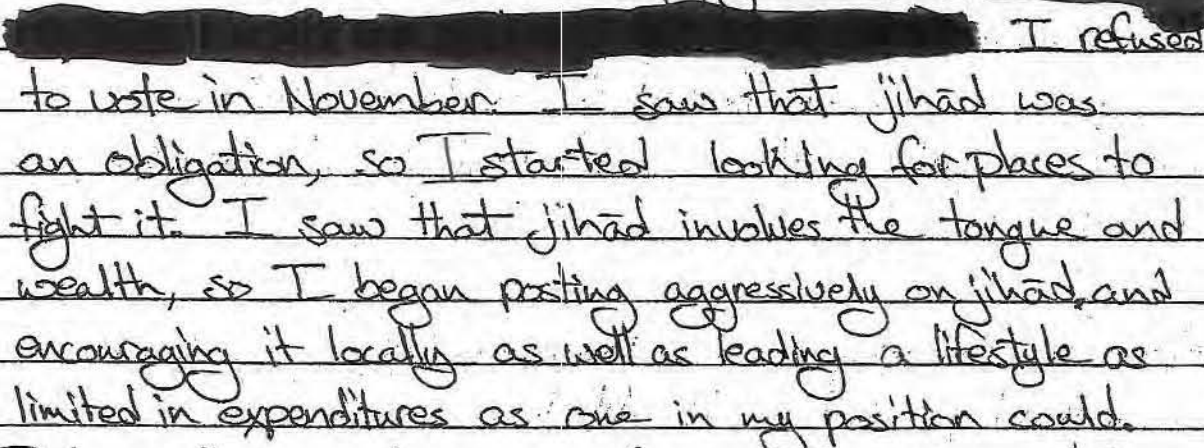 I refused
to vote in November. I saw that jihād was
an obligation, so I started looking for places to
fight it. I saw that jihād involves the tongue and
wealth, so I began posting aggressively on jihād, and
encouraging it locally as well as leading a lifestyle as
limited in expenditures as one in my position could.